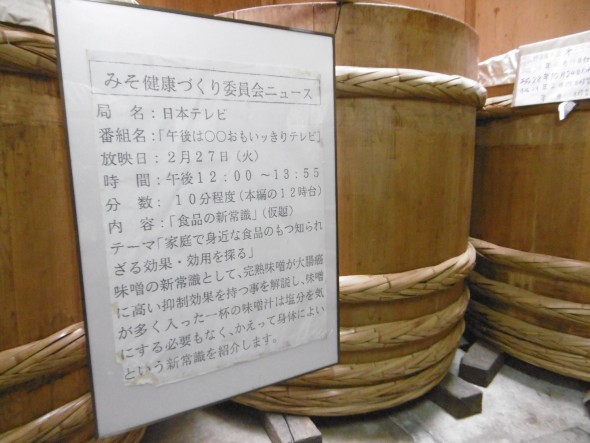 みそ健康づくり委員会ニュース
局　名：日本テレビ
番組名：「午後は〇〇おもいッきりテレビ」
放映日：２月２７日（火）
時　間：午後１２：００～１３：５５
分　数：１０分程度（本編の１２時台）
内　容：「食品の新常識」（仮題）
テーマ「家庭で身近な食品のもつ知られ
ざる効果・効用を探る」
味噌の新常識として、完熟味噌が大腸癌
に高い抑制効果を持つ事を解説し、味噌
が多く入った一杯の味噌汁は塩分を気
にする必要もなく、かえって身体によい
という新常識を紹介します。